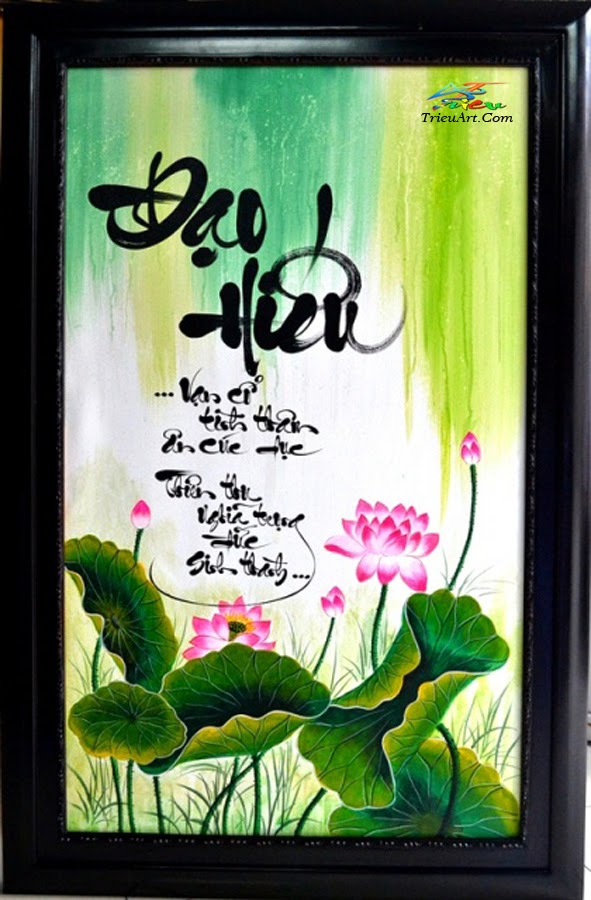 Trieu
TrieuArt.Com
Đạo
Hiếu
... Vạn cổ
tình thâm
ân cúc dục
Thiên thu
nghĩa trọng
đức
sinh thành ...